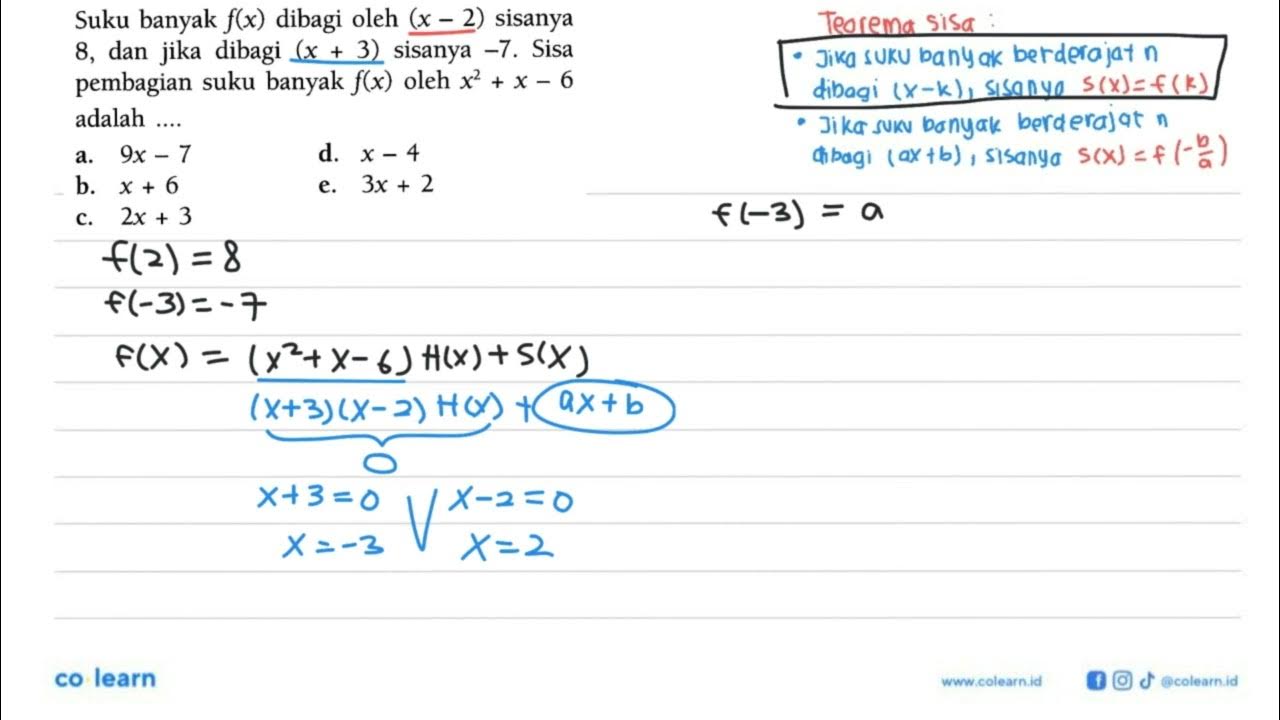 Suku banyak f(x) dibagi oleh (x – 2) sisanya
8, dan jika dibagi (x + 3) sisanya –7. Sisa
pembagian suku banyak f(x) oleh x² + x – 6
adalah ....
a. 9x – 7
d. x – 4
b. x + 6
e. 3x + 2
c. 2x + 3
Teorema sisa :
• Jika suku banyak berderajat n
dibagi (x-k), sisanya s(x)=f(k)
• Jika suku banyak berderajat n
dibagi (ax+b), sisanya s(x)=f(-b/a)
f(-3) = a
f(2) = 8
f(-3) = -7
f(x) = (x²+x-6) H(x) + S(x)
(x+3)(x-2) H(x) + ax+b
0
x+3=0 V x-2=0
x=-3 x=2
co learn
www.colearn.id
@colearn.id